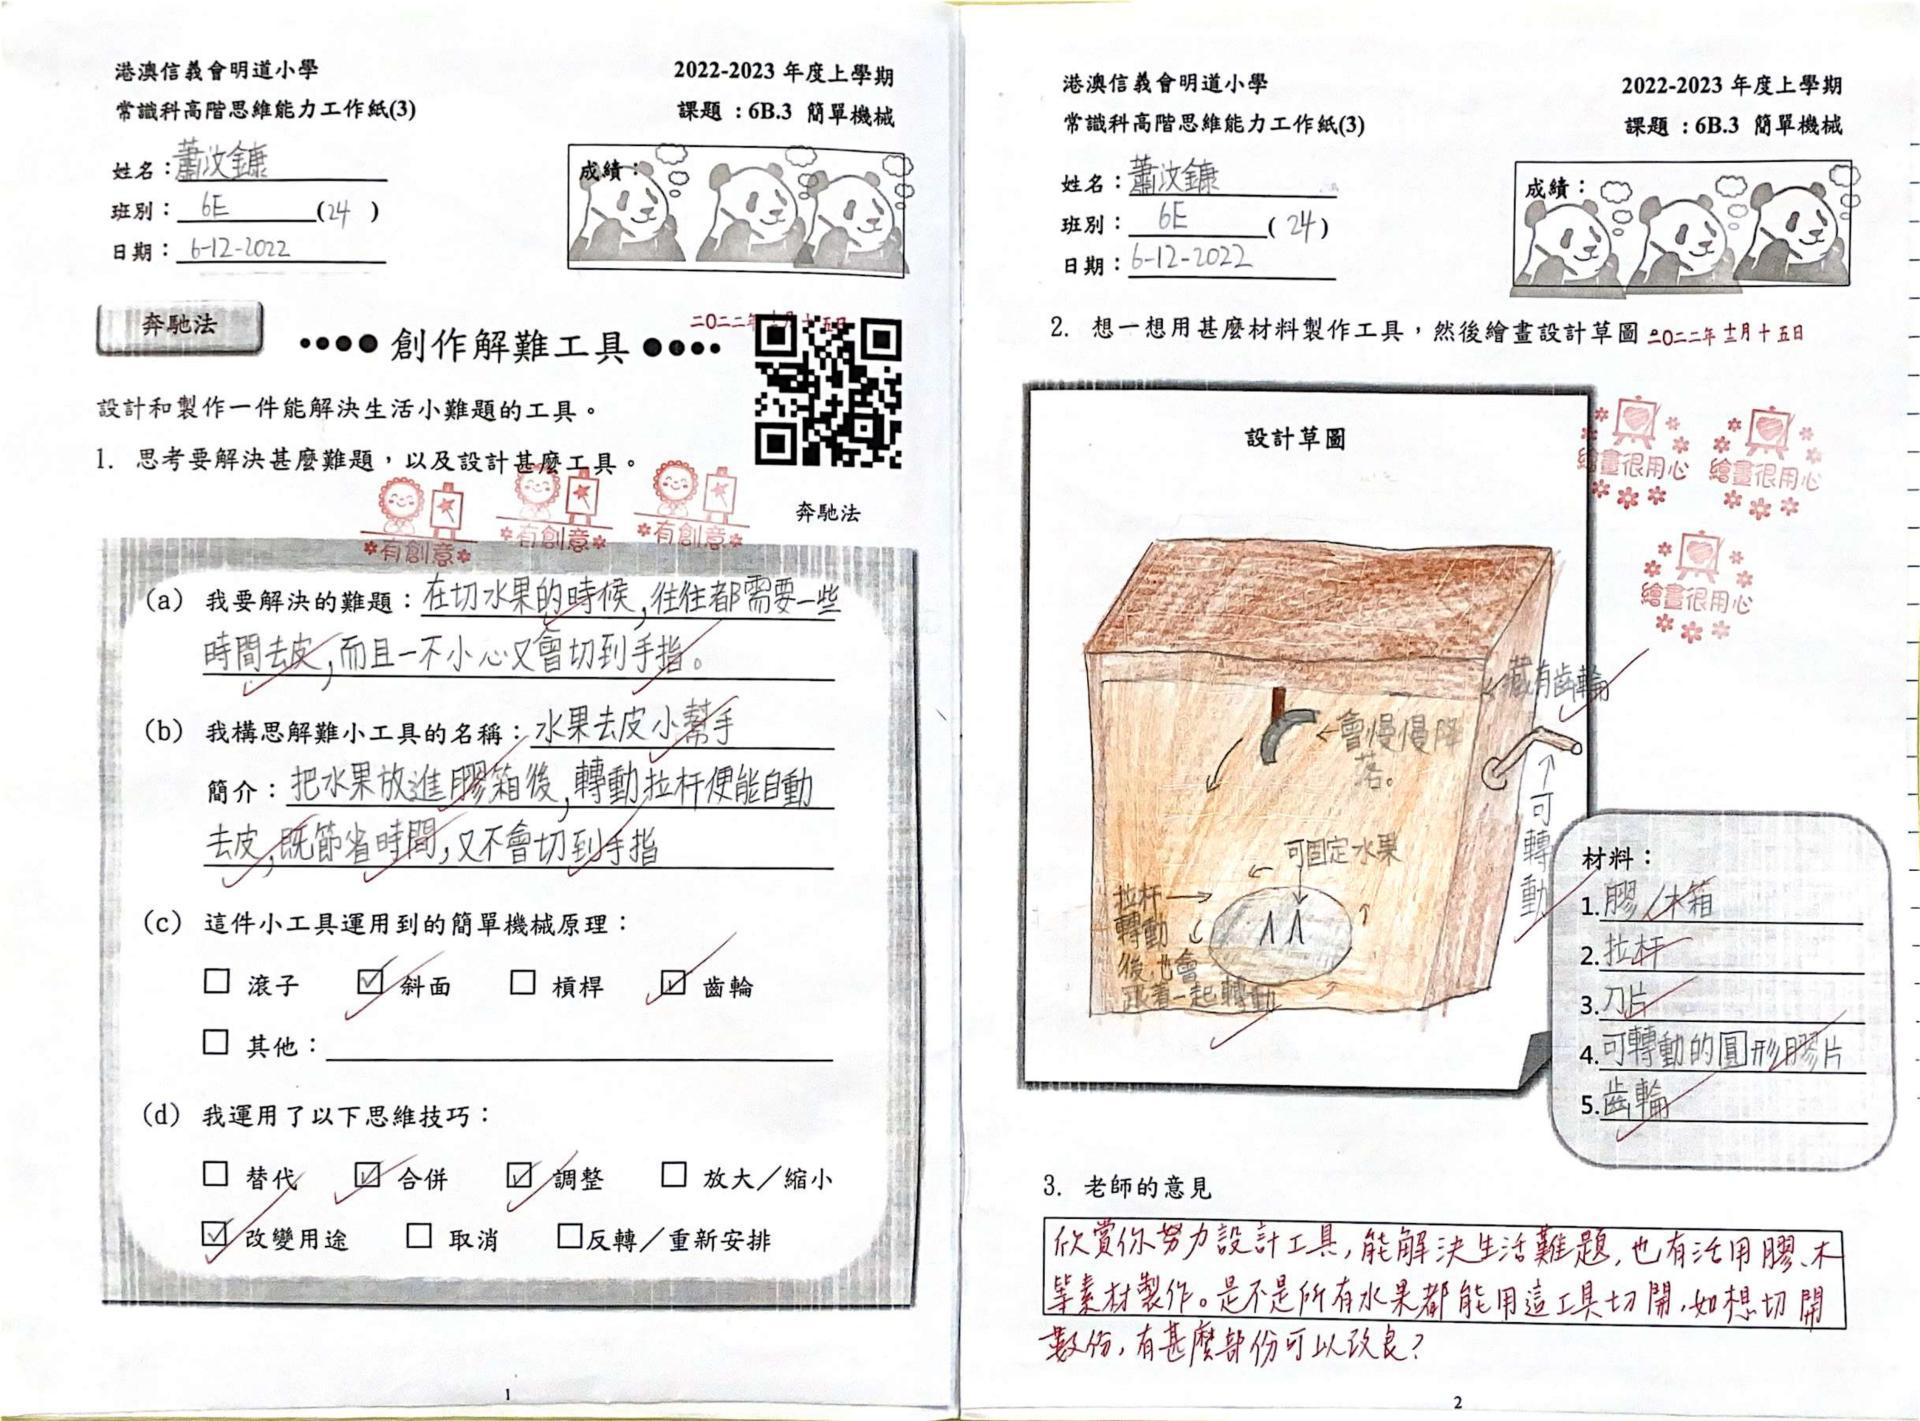 港澳信義會明道小學
2022-2023 年度上學期
常識科高階思維能力工作紙(3)
課題：6B.3 簡單機械
姓名：蕭汶鏮
班別：6E(24)
日期：6-12-2022
成績：
奔馳法
二〇二二年十二月十五日
創作解難工具
設計和製作一件能解決生活小難題的工具。
1. 思考要解決甚麼難題，以及設計甚麼工具。
有創意 有創意 有創意
奔馳法
(a) 我要解決的難題：在切水果的時候，往往都需要一些
時間去皮，而且一不小心又會切到手指。
(b) 我構思解難小工具的名稱：水果去皮小幫手
簡介：把水果放進膠箱後，轉動拉杆便能自動
去皮，既節省時間，又不會切到手指
(c) 這件小工具運用到的簡單機械原理：
□ 滾子 ☑ 斜面 □ 槓桿 ☑ 齒輪
□ 其他：
(d) 我運用了以下思維技巧：
□ 替代 ☑ 合併 ☑ 調整 □ 放大／縮小
☑ 改變用途 □ 取消 □反轉／重新安排
1
港澳信義會明道小學
2022-2023 年度上學期
常識科高階思維能力工作紙(3)
課題：6B.3 簡單機械
姓名：蕭汶鏮
班別：6E(24)
日期：6-12-2022
成績：
2. 想一想用甚麼材料製作工具，然後繪畫設計草圖。
二〇二二年十二月十五日
設計草圖
繪畫很用心 繪畫很用心
繪畫很用心
藏有齒輪
會慢慢降
落。
可轉動
可固定水果
拉杆
轉動
後，也會
跟着一起轉動
材料：
1.膠／木箱
2.拉杆
3.刀片
4.可轉動的圓形膠片
5.齒輪
3. 老師的意見
欣賞你努力設計工具，能解決生活難題，也有活用膠、木
等素材製作。是不是所有水果都能用這工具切開，如想切開
數份，有甚麼部份可以改良？
2